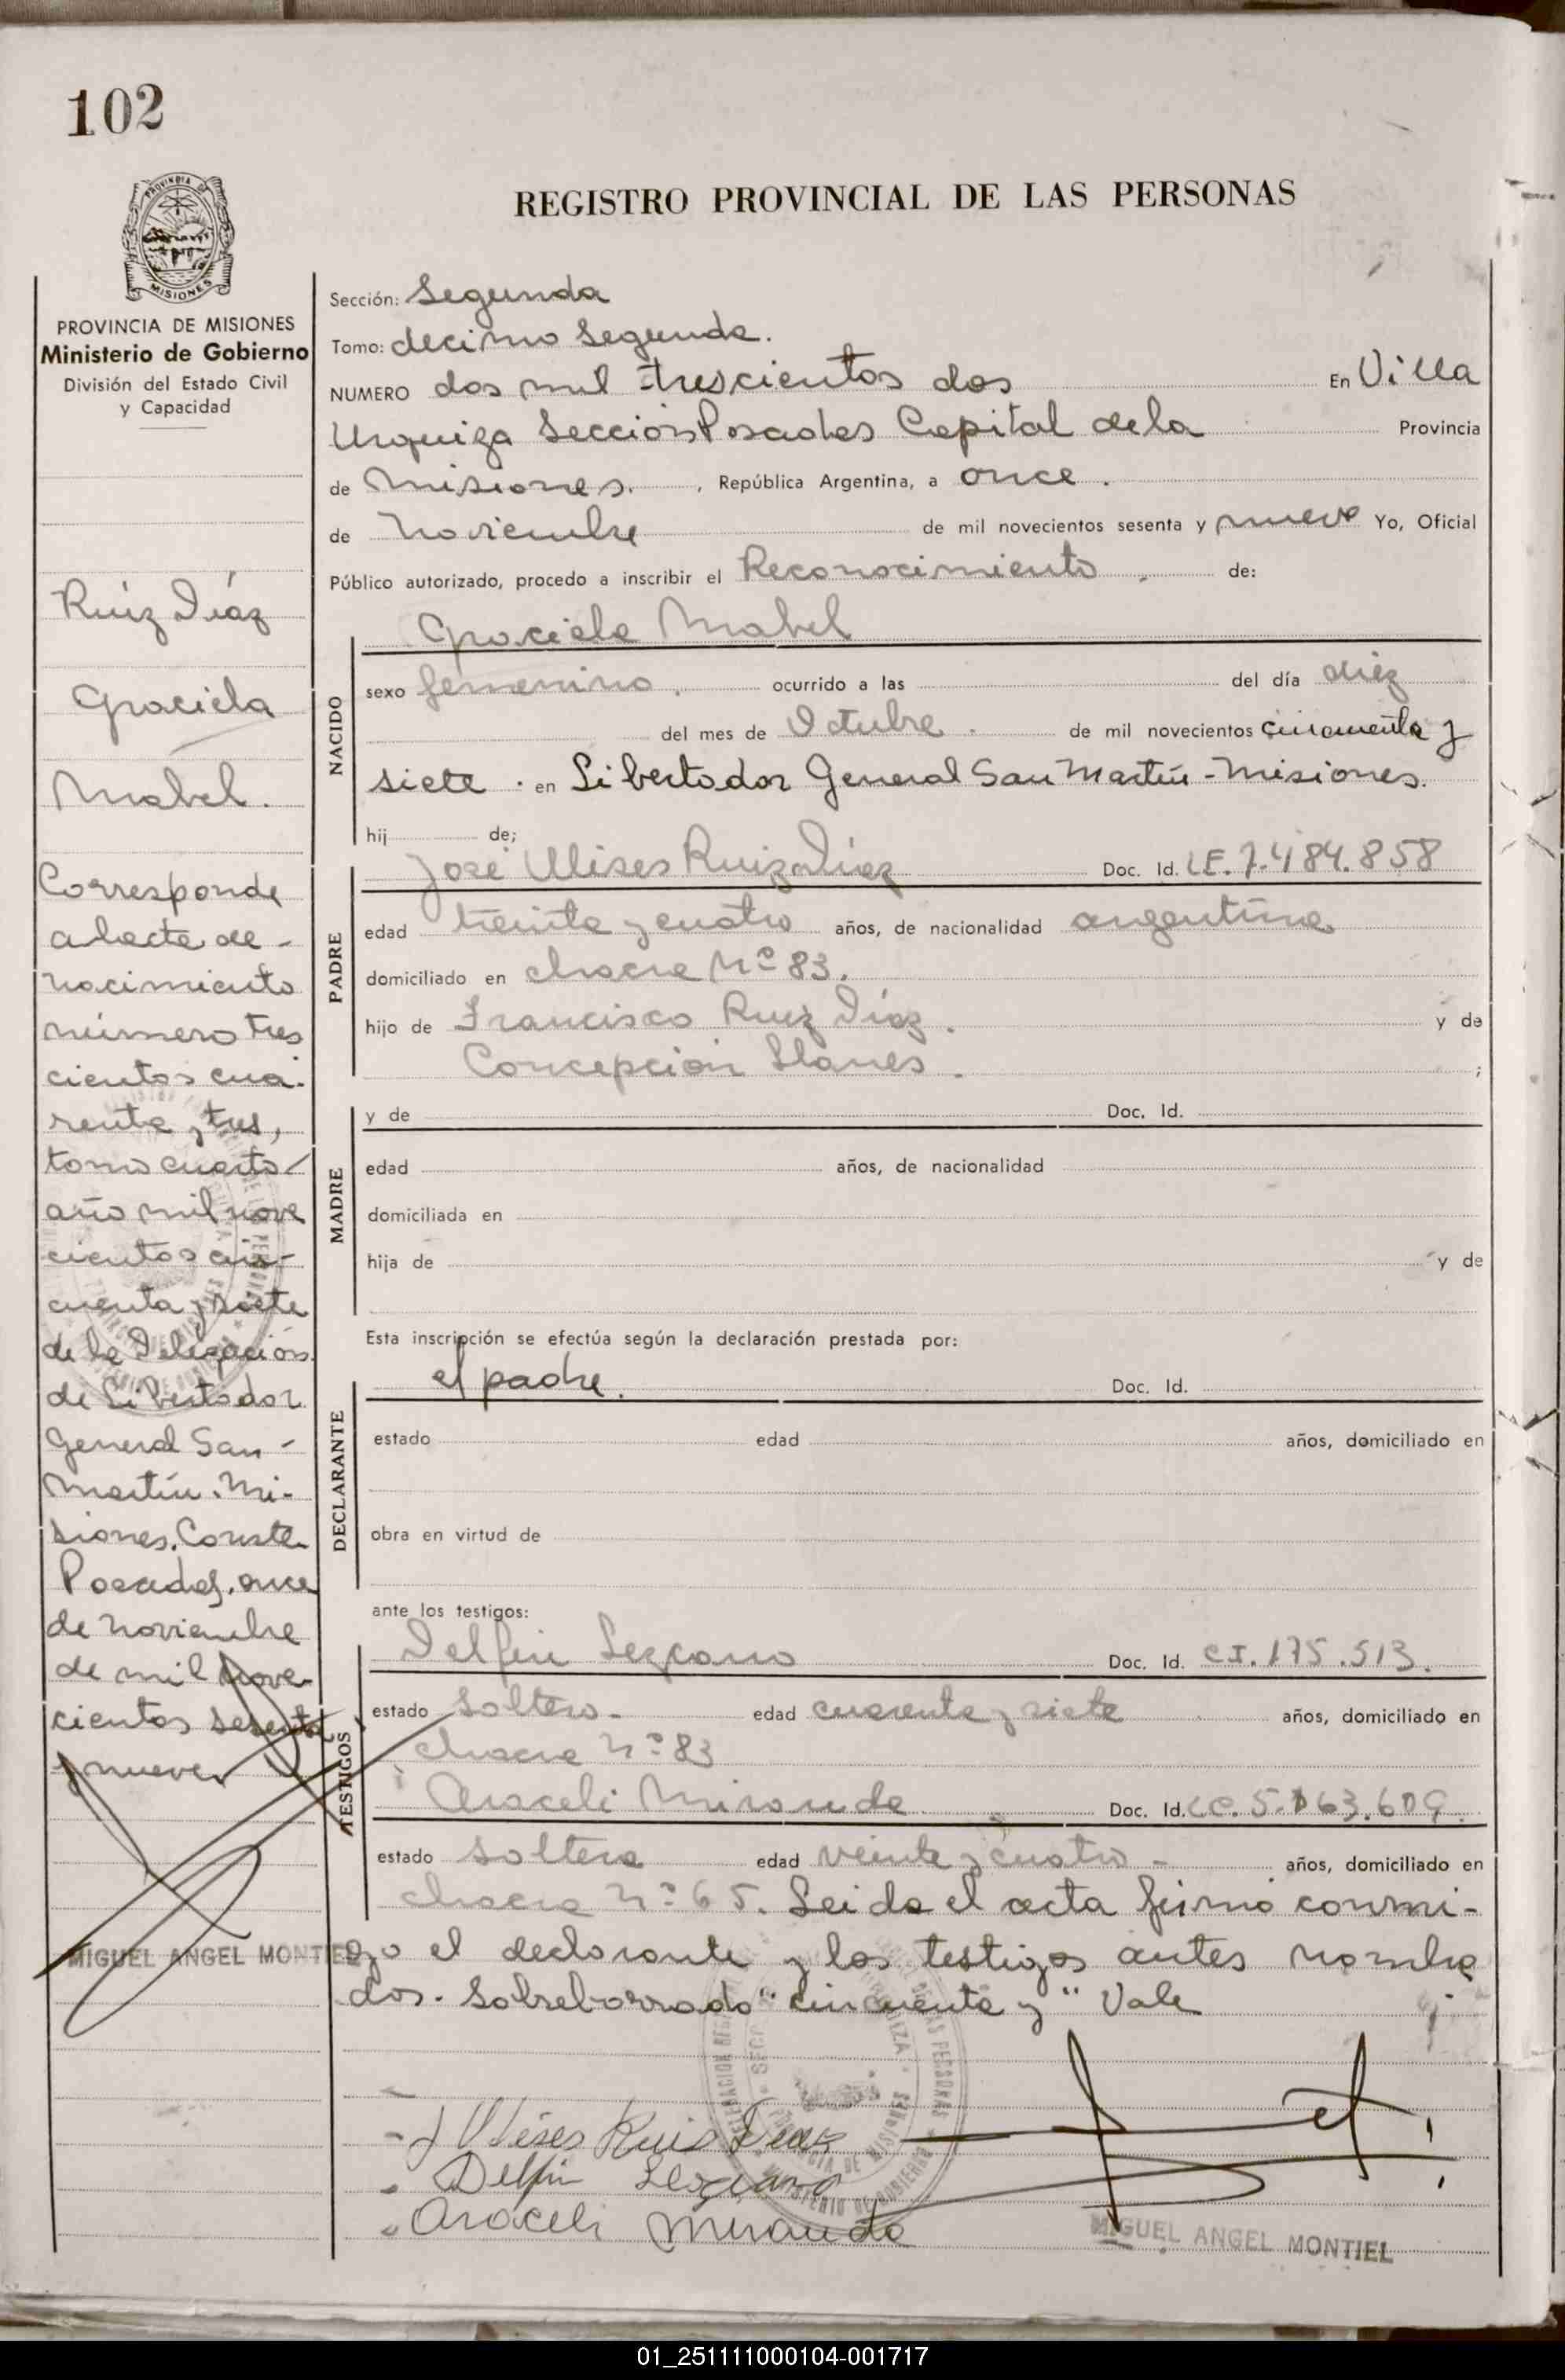 102
PROVINCIA DE
MISIONES
REGISTRO PROVINCIAL DE LAS PERSONAS
PROVINCIA DE MISIONES
Ministerio de Gobierno
División del Estado Civil
y Capacidad
Ruiz Díaz
Graciela
Mabel.
Corresponde
al acta de-
nacimiento
número tres
cientos cua-
renta y tres,
tomo cuarto
año mil nove
cientos cin-
cuenta y siete
de la Delegación
de Libertador
General San-
Martín. Mi-
siones. Conste
Posadas, once
de noviembre
de mil nove-
cientos sesenta
y nueve
MIGUEL ANGEL MONTIEL
Sección: Segunda
Tomo: decimo segundo.
NUMERO dos mil trescientos dos En Villa
Urquiza Sección Posadas Capital de la Provincia
de Misiones. , República Argentina, a once.
de Noviembre de mil novecientos sesenta y nueve Yo, Oficial
Público autorizado, procedo a inscribir el Reconocimiento de:
Graciela Mabel
NACIDO
sexo femenino. ocurrido a las del día diez
del mes de Octubre. de mil novecientos cincuenta y
siete. en Libertador General San Martín - Misiones.
hij de;
José Ulises Ruiz Díaz Doc. Id. LE. 7.484.858
PADRE
edad treinta y cuatro años, de nacionalidad argentina
domiciliado en chacra Nº 83.
hijo de Francisco Ruiz Díaz. y de
Concepción Llanes. ;
y de Doc. Id.
MADRE
edad años, de nacionalidad
domiciliada en
hija de y de
Esta inscripción se efectúa según la declaración prestada por:
el padre. Doc. Id.
DECLARANTE
estado edad años, domiciliado en
obra en virtud de
ante los testigos:
Delfin Lezcano Doc. Id. CI. 175.513.
TESTIGOS
estado soltero. edad cuarenta y siete años, domiciliado en
chacra nº 83
Araceli Miranda Doc. Id. LC. 5.163.609.
estado soltera edad veinte y cuatro - años, domiciliado en
chacra nº 65. Leida el acta firmó conmi-
go el declarante y los testigos antes nombra
dos. Sobreborrado "cincuenta y" Vale
J Ulises Ruis Diaz
Delfin Lezcano
Araceli Miranda
MIGUEL ANGEL MONTIEL
01_251111000104-001717